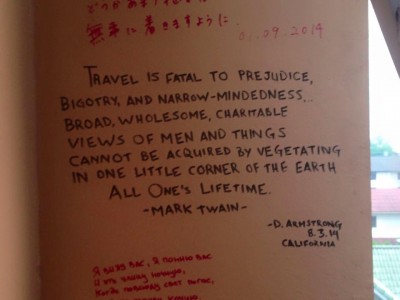 無事に着きますように.
09.2014
TRAVEL IS FATAL TO PREJUDICE,
BIGOTRY, AND NARROW-MINDEDNESS,..
BROAD, WHOLESOME, CHARITABLE
VIEWS OF MEN AND THINGS
CANNOT BE ACQUIRED BY VEGETATING
IN ONE LITTLE CORNER OF THE EARTH
ALL ONE'S LIFETIME.
-MARK TWAIN-
-D. ARMSTRONG
8.3.14
CALIFORNIA
Я вижу вас, я помню вас
И эту ночную
Когда свет погас,